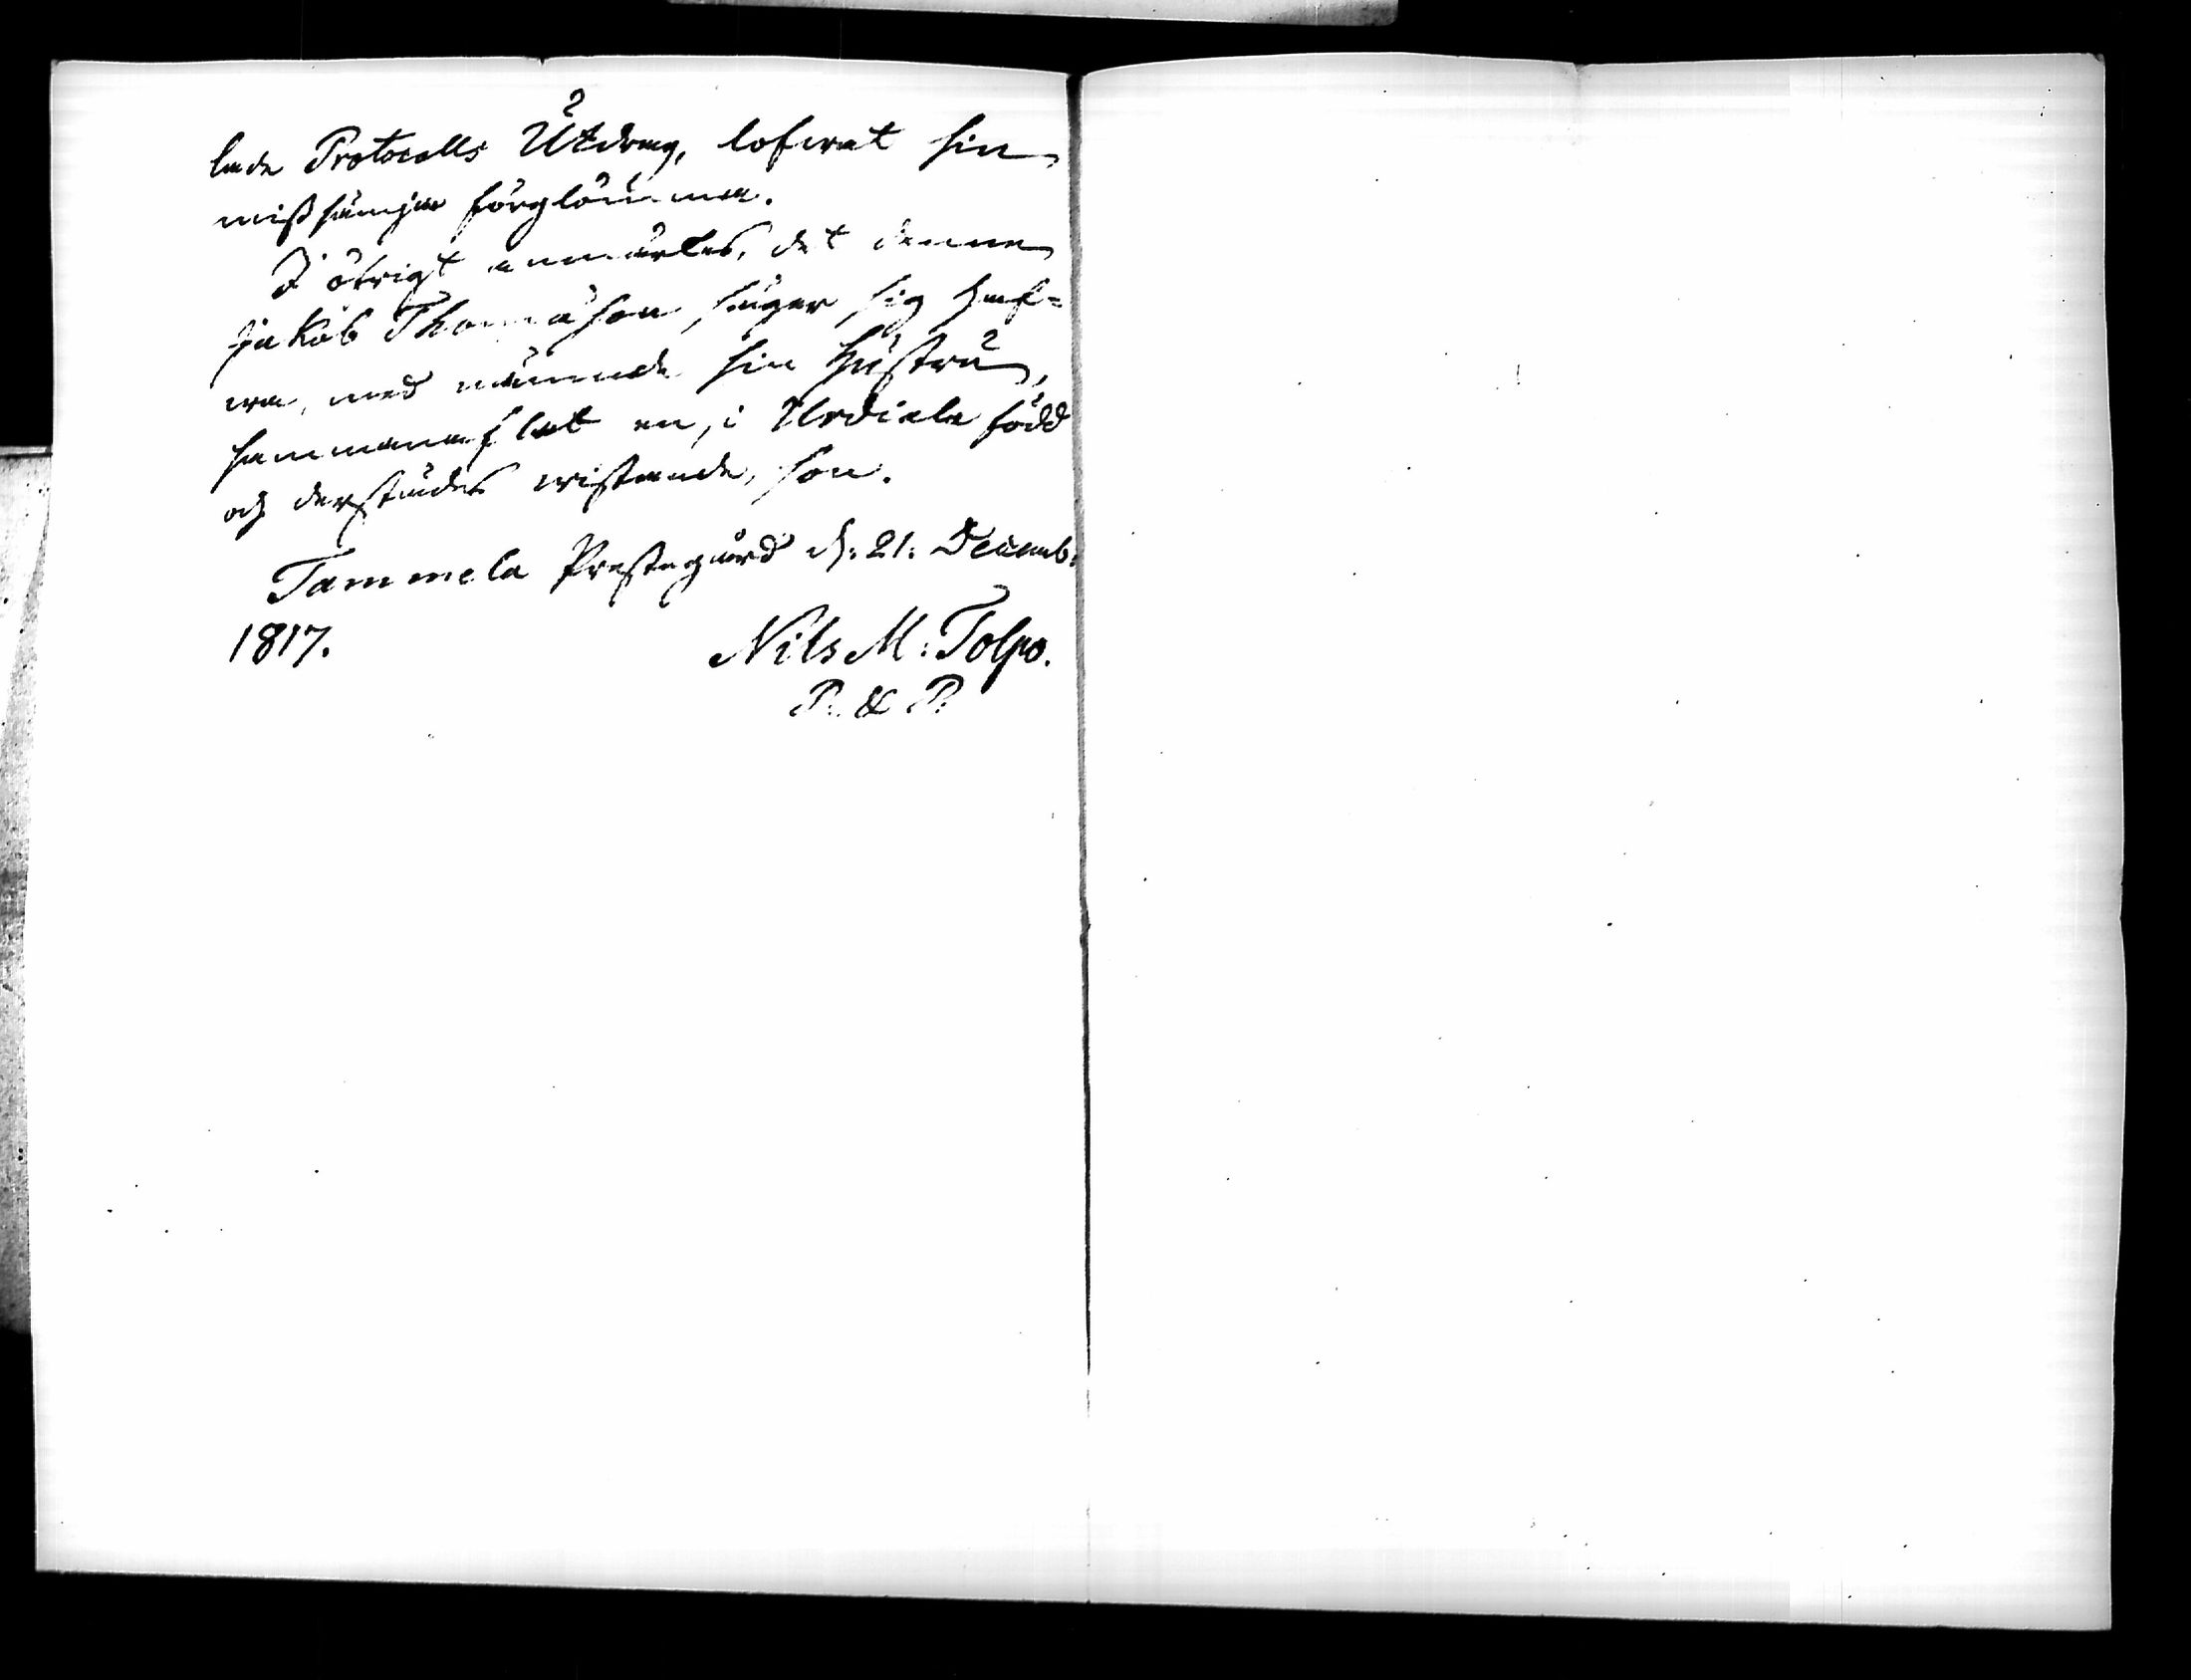 lade Protocolls Utdrag, lofwat sin
missämja förglömma.
I öfrigt anmärkes, det denne
Jakob Thomasson, säger sig haf-
wa, med nämnde sin Hustru,
sammanaflat en, i Urdiala född
och derstädes wistande, son.
Tammela Prestegård d. 21. Decemb.
1817.
Nils M: Tolpo.
P. & P.